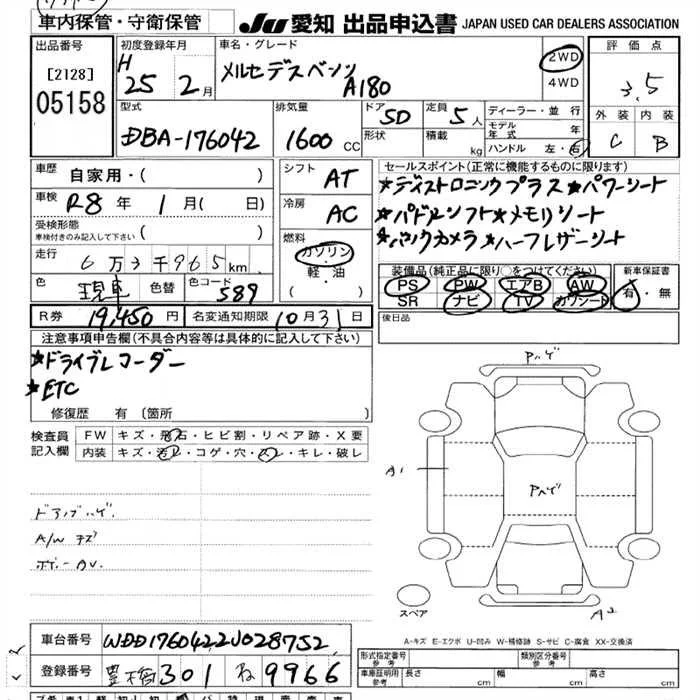 車内保管・守衛保管
JU 愛知 出品申込書 JAPAN USED CAR DEALERS ASSOCIATION
出品番号
[2128]
05158
初度登録年月
H 25 2月
車名・グレード
メルセデスベンツ
A180
2WD
4WD
評価点
3.5
外装 内装
C B
型式
DBA-176042
排気量
1600 CC
ドア 5D
形状
定員 5人
積載 kg
ディーラー・並行
モデル年式 年
ハンドル 左・右
車歴 自家用・( )
車検 R8年 1月( 日)
受検形態
車検付きのみ記入して下さい ( )
走行 6万3千965km
色 色替 色コード 589
R券 19,450円 名変通知期限 10月31日
シフト AT
冷房 AC
燃料
ガソリン
軽・油
( ・ )
セールスポイント(正常に機能するものに限ります)
★ディストロニックプラス★パワーシート
★パドルシフト★メモリシート
★バックカメラ★ハーフレザーシート
装備品(純正品に限り○をつけてください)
PS PW エアB AW
SR ナビ TV カワシート
新車保証書
有・無
後日品
注意事項申告欄(不具合内容等は具体的に記入して下さい)
★ドライブレコーダー
★ETC
修復歴 有(箇所
検査員記入欄
FW キズ・飛石・ヒビ割・リペア跡・X要
内装 キズ・汚レ・コゲ・穴・スレ・キレ・破レ
A/W キズ
Pハゲ
A1
Pハゲ
A2
スペア
A-キズ E-エクボ U-凹み W-補修跡 S-サビ C-腐食 XX-交換済
車台番号 WDD1760422J028752
登録番号 豊橋 301 ね 9966
形式指定番号 参考
類別区分番号 参考
車庫証明用 参考 長さ cm 幅 cm 高さ cm